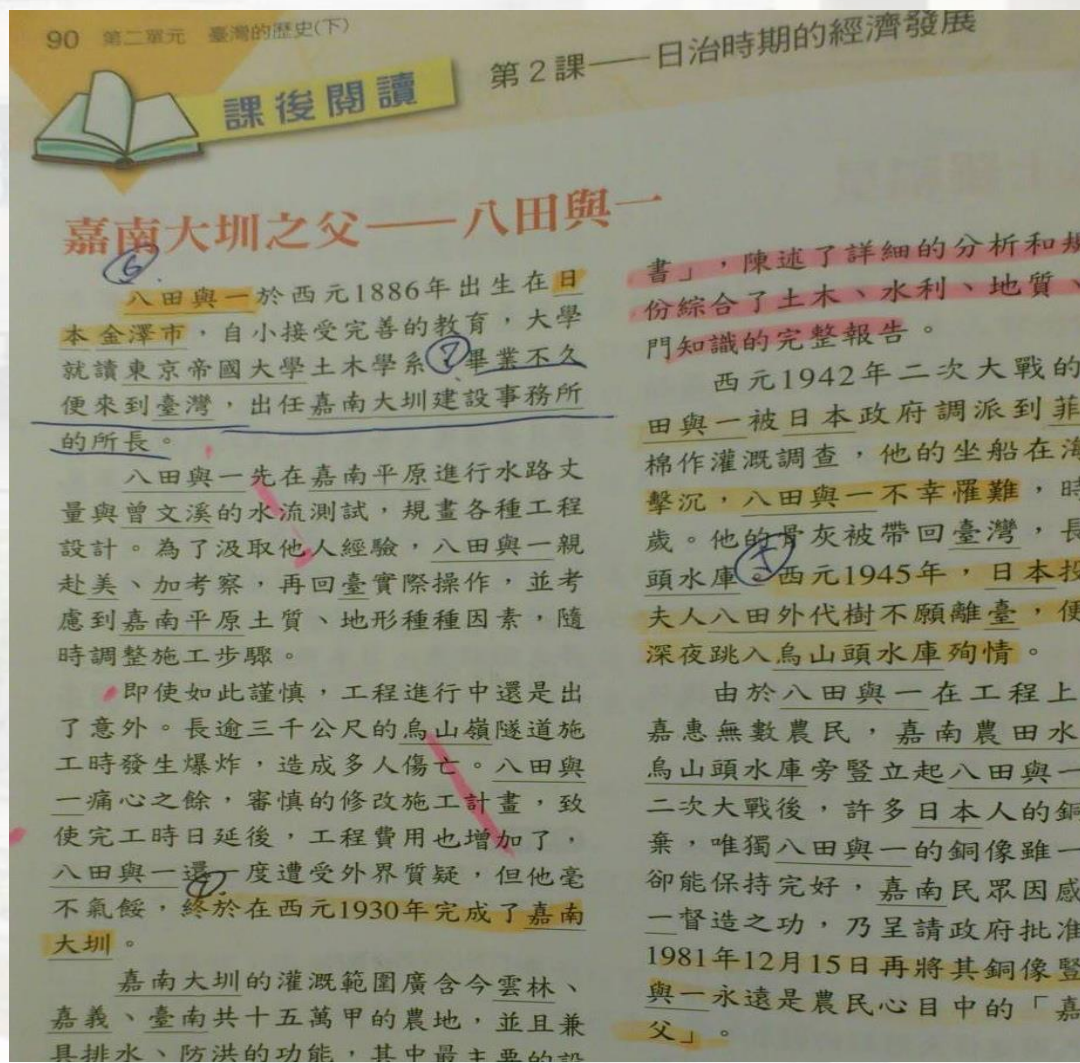 90 第二單元 臺灣的歷史(下)
課後閱讀
第2課——日治時期的經濟發展
嘉南大圳之父——八田與一
⑥
八田與一於西元1886年出生在日
本金澤市,自小接受完善的教育,大學
就讀東京帝國大學土木學系⑦畢業不久
便來到臺灣,出任嘉南大圳建設事務所
的所長。
八田與一先在嘉南平原進行水路丈
量與曾文溪的水流測試,規畫各種工程
設計。為了汲取他人經驗,八田與一親
赴美、加考察,再回臺實際操作,並考
慮到嘉南平原土質、地形種種因素,隨
時調整施工步驟。
即使如此謹慎,工程進行中還是出
了意外。長逾三千公尺的烏山嶺隧道施
工時發生爆炸,造成多人傷亡。八田與
一痛心之餘,審慎的修改施工計畫,致
使完工時日延後,工程費用也增加了,
八田與一還一度遭受外界質疑,但他毫
不氣餒,終於在西元1930年完成了嘉南
大圳。
嘉南大圳的灌溉範圍廣含今雲林、
嘉義、臺南共十五萬甲的農地,並且兼
具排水、防洪的功能,其中最主要的設
書」,陳述了詳細的分析和規
份綜合了土木、水利、地質、
門知識的完整報告。
西元1942年二次大戰的
田與一被日本政府調派到菲
棉作灌溉調查,他的坐船在海
擊沉,八田與一不幸罹難,時
歲。他的骨灰被帶回臺灣,長
頭水庫⑤西元1945年,日本投
夫人八田外代樹不願離臺,便
深夜跳入烏山頭水庫殉情。
由於八田與一在工程上
嘉惠無數農民,嘉南農田水
烏山頭水庫旁豎立起八田與一
二次大戰後,許多日本人的銅
棄,唯獨八田與一的銅像雖一
卻能保持完好,嘉南民眾因感
一督造之功,乃呈請政府批准
1981年12月15日再將其銅像豎
與一永遠是農民心目中的「嘉
父」。